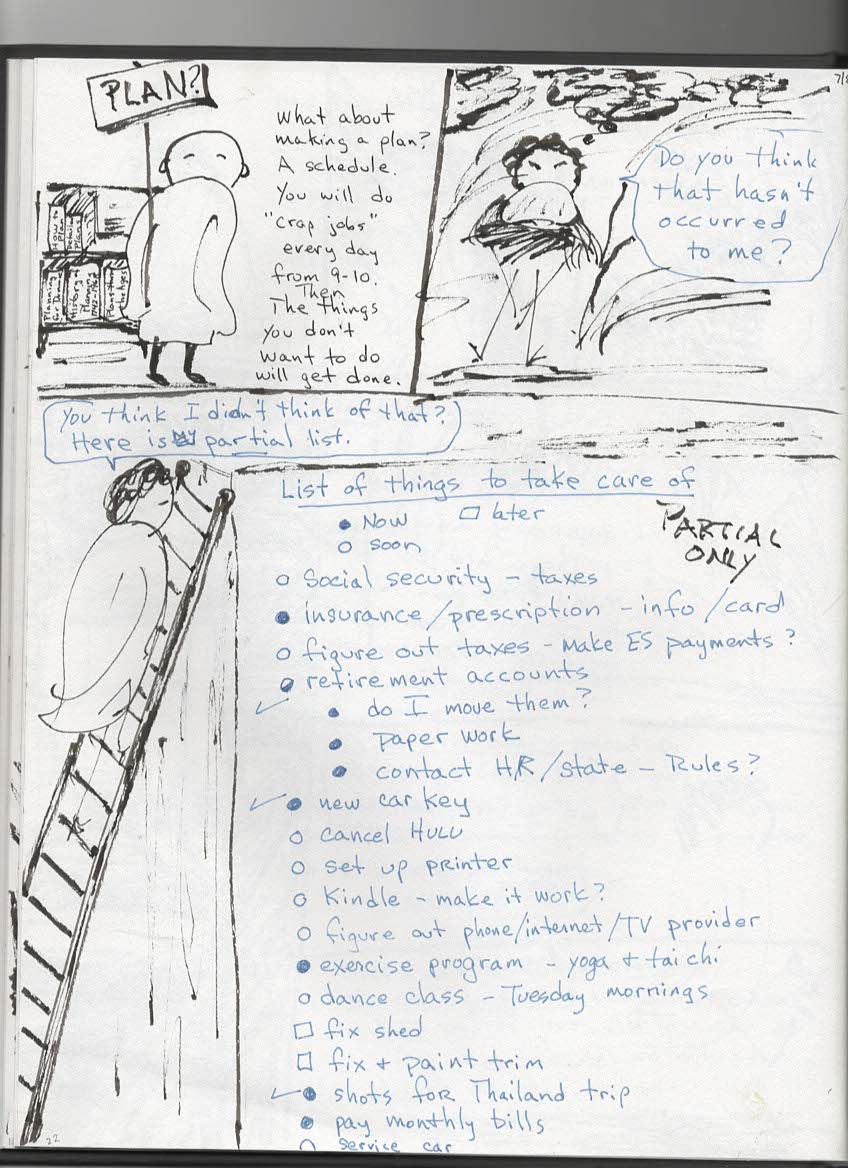 PLAN?
What about
making a plan?
A schedule.
You will do
"crap jobs"
every day
from 9-10.
Then
The things
you don't
want to do
will get done.
How to
Plan
Planning
for Dummies
History of
Planning
Plans thru
the Ages
7/8
Do you think
that hasn't
occurred
to me?
You think I didn't think of that?
Here is partial list.
List of things to take care of
● Now □ later
○ soon
PARTIAL
ONLY
○ Social security - taxes
● insurance/prescription - info/card
○ figure out taxes - make ES payments?
● retirement accounts
✓ ● do I move them?
● paper work
● contact HR/state - Rules?
✓ ● new car key
○ cancel HULU
○ set up printer
○ Kindle - make it work?
○ figure out phone/internet/TV provider
● exercise program - yoga + tai chi
○ dance class - Tuesday mornings
□ fix shed
□ fix + paint trim
✓ ● shots for Thailand trip
● pay monthly bills
○ service car
22